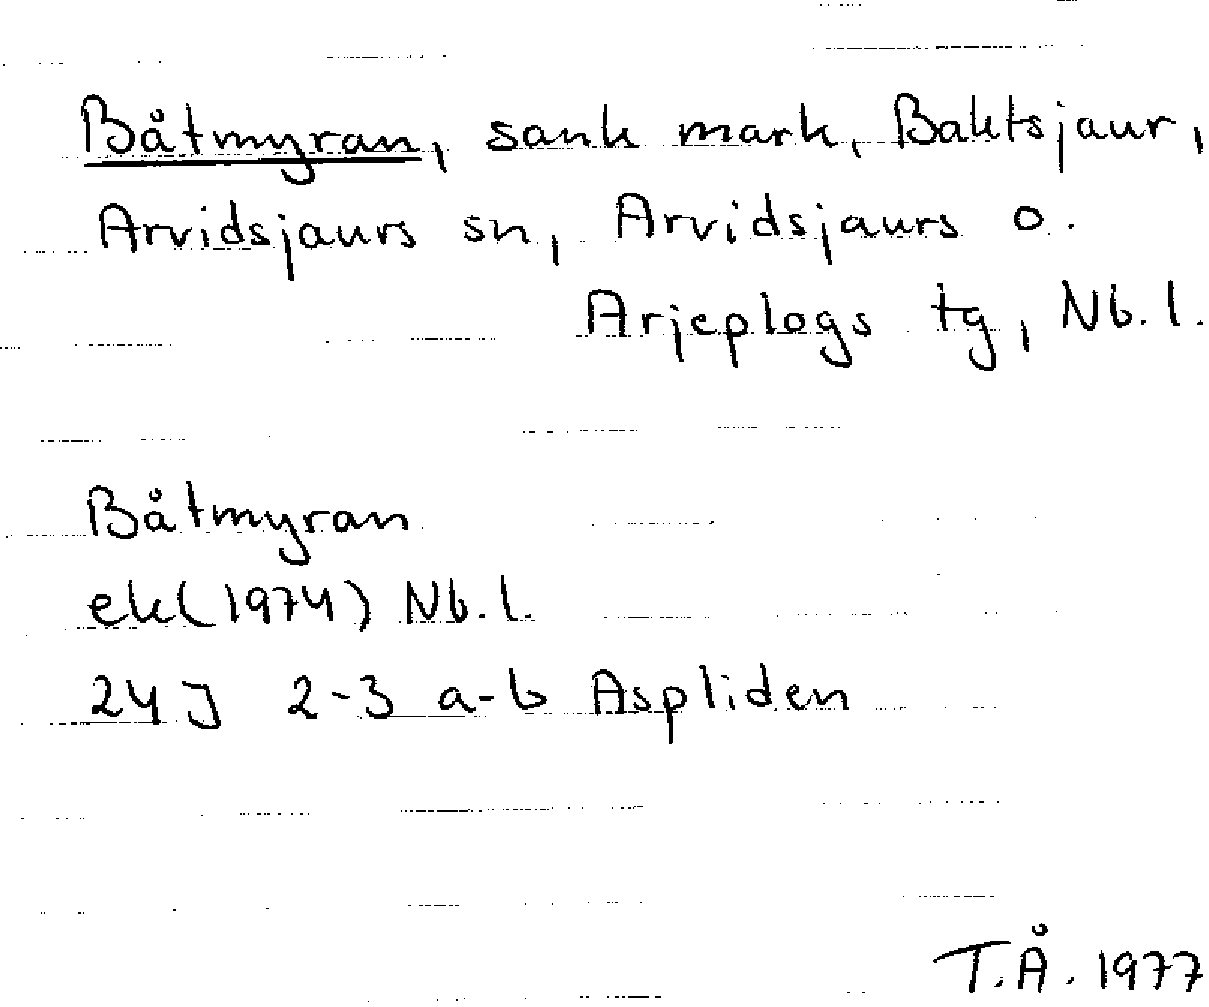 Båtmyran, sank mark, Baktsjaur,
Arvidsjaurs sn, Arvidsjaurs o.
Arjeplogs tg, Nb. l.
Båtmyran
ek (1974) Nb. l.
24 J 2-3 a-b Aspliden
T.Å. 1977